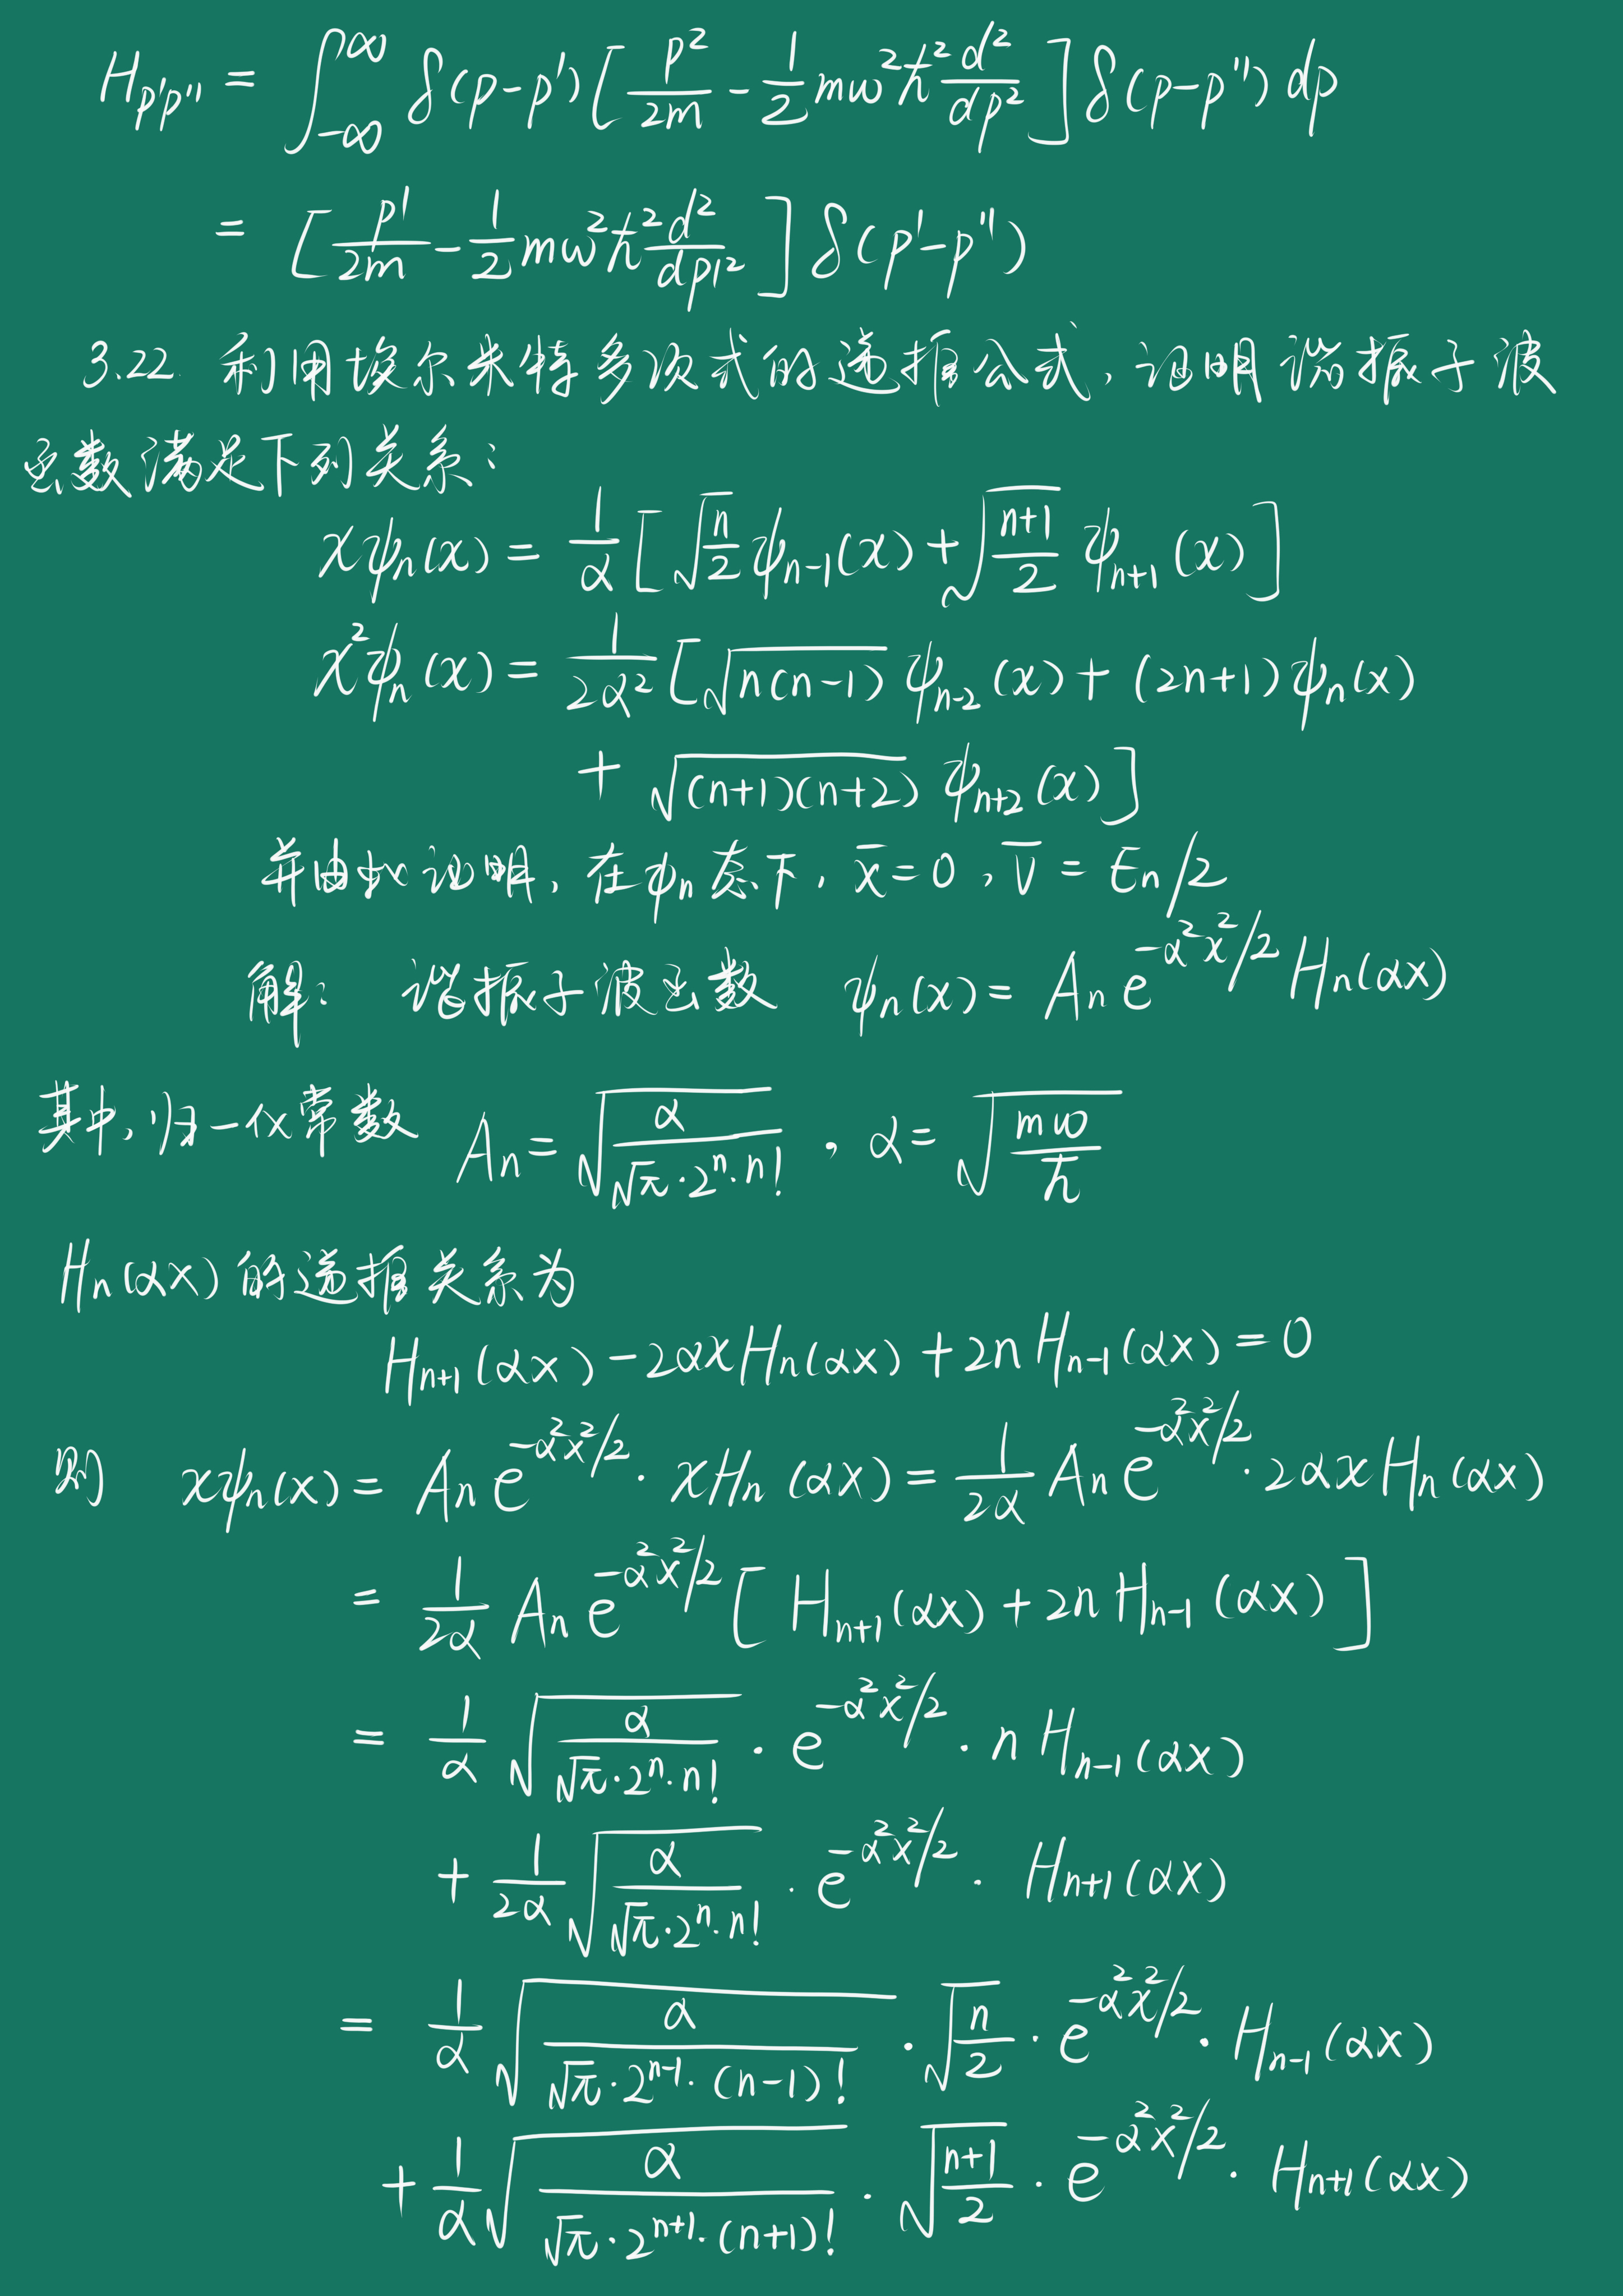 H_{p'p''} = ∫_{-∞}^{∞} δ(p-p') [p²/2m - 1/2 mω²ħ² d²/dp²] δ(p-p'') dp
= [p'/2m - 1/2 mω²ħ² d²/dp'²] δ(p'-p'')
3.22 利用埃尔米特多项式的递推公式,证明谐振子波
函数满足下列关系:
xψ_n(x) = 1/α [√(n/2) ψ_{n-1}(x) + √((n+1)/2) ψ_{n+1}(x)]
x²ψ_n(x) = 1/(2α²) [√(n(n-1)) ψ_{n-2}(x) + (2n+1)ψ_n(x)
+ √((n+1)(n+2)) ψ_{n+2}(x)]
并由此证明,在ψ_n态下,x̄=0,V̄=E_n/2
解: 谐振子波函数 ψ_n(x) = A_n e^{-α²x²/2} H_n(αx)
其中,归一化常数 A_n = √(α/(√π·2^n·n!)) , α = √(mω/ħ)
H_n(αx)的递推关系为
H_{n+1}(αx) - 2αxH_n(αx) + 2nH_{n-1}(αx) = 0
则 xψ_n(x) = A_n e^{-α²x²/2}·xH_n(αx) = 1/(2α) A_n e^{-α²x²/2}·2αxH_n(αx)
= 1/(2α) A_n e^{-α²x²/2} [H_{n+1}(αx) + 2nH_{n-1}(αx)]
= 1/α √(α/(√π·2^n·n!)) · e^{-α²x²/2} · nH_{n-1}(αx)
+ 1/(2α) √(α/(√π·2^n·n!)) · e^{-α²x²/2} · H_{n+1}(αx)
= 1/α √(α/(√π·2^{n-1}·(n-1)!)) · √(n/2) · e^{-α²x²/2} · H_{n-1}(αx)
+ 1/α √(α/(√π·2^{n+1}·(n+1)!)) · √((n+1)/2) · e^{-α²x²/2} · H_{n+1}(αx)